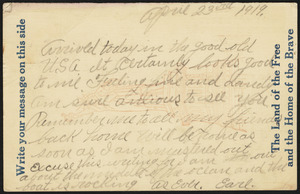 April 23rd 1919.
Arrived today in the good old
USA it certainly looks good
to me. Feeling fine and dandy
am sure anxious to see you
Remember me to all my friends
back home will be home as
soon as I am mustered out
Excuse this writing as I am
about the middle of the ocean and the
boat is rocking as ever. Earl
Write your message on this side
The Land of the Free
and the Home of the Brave